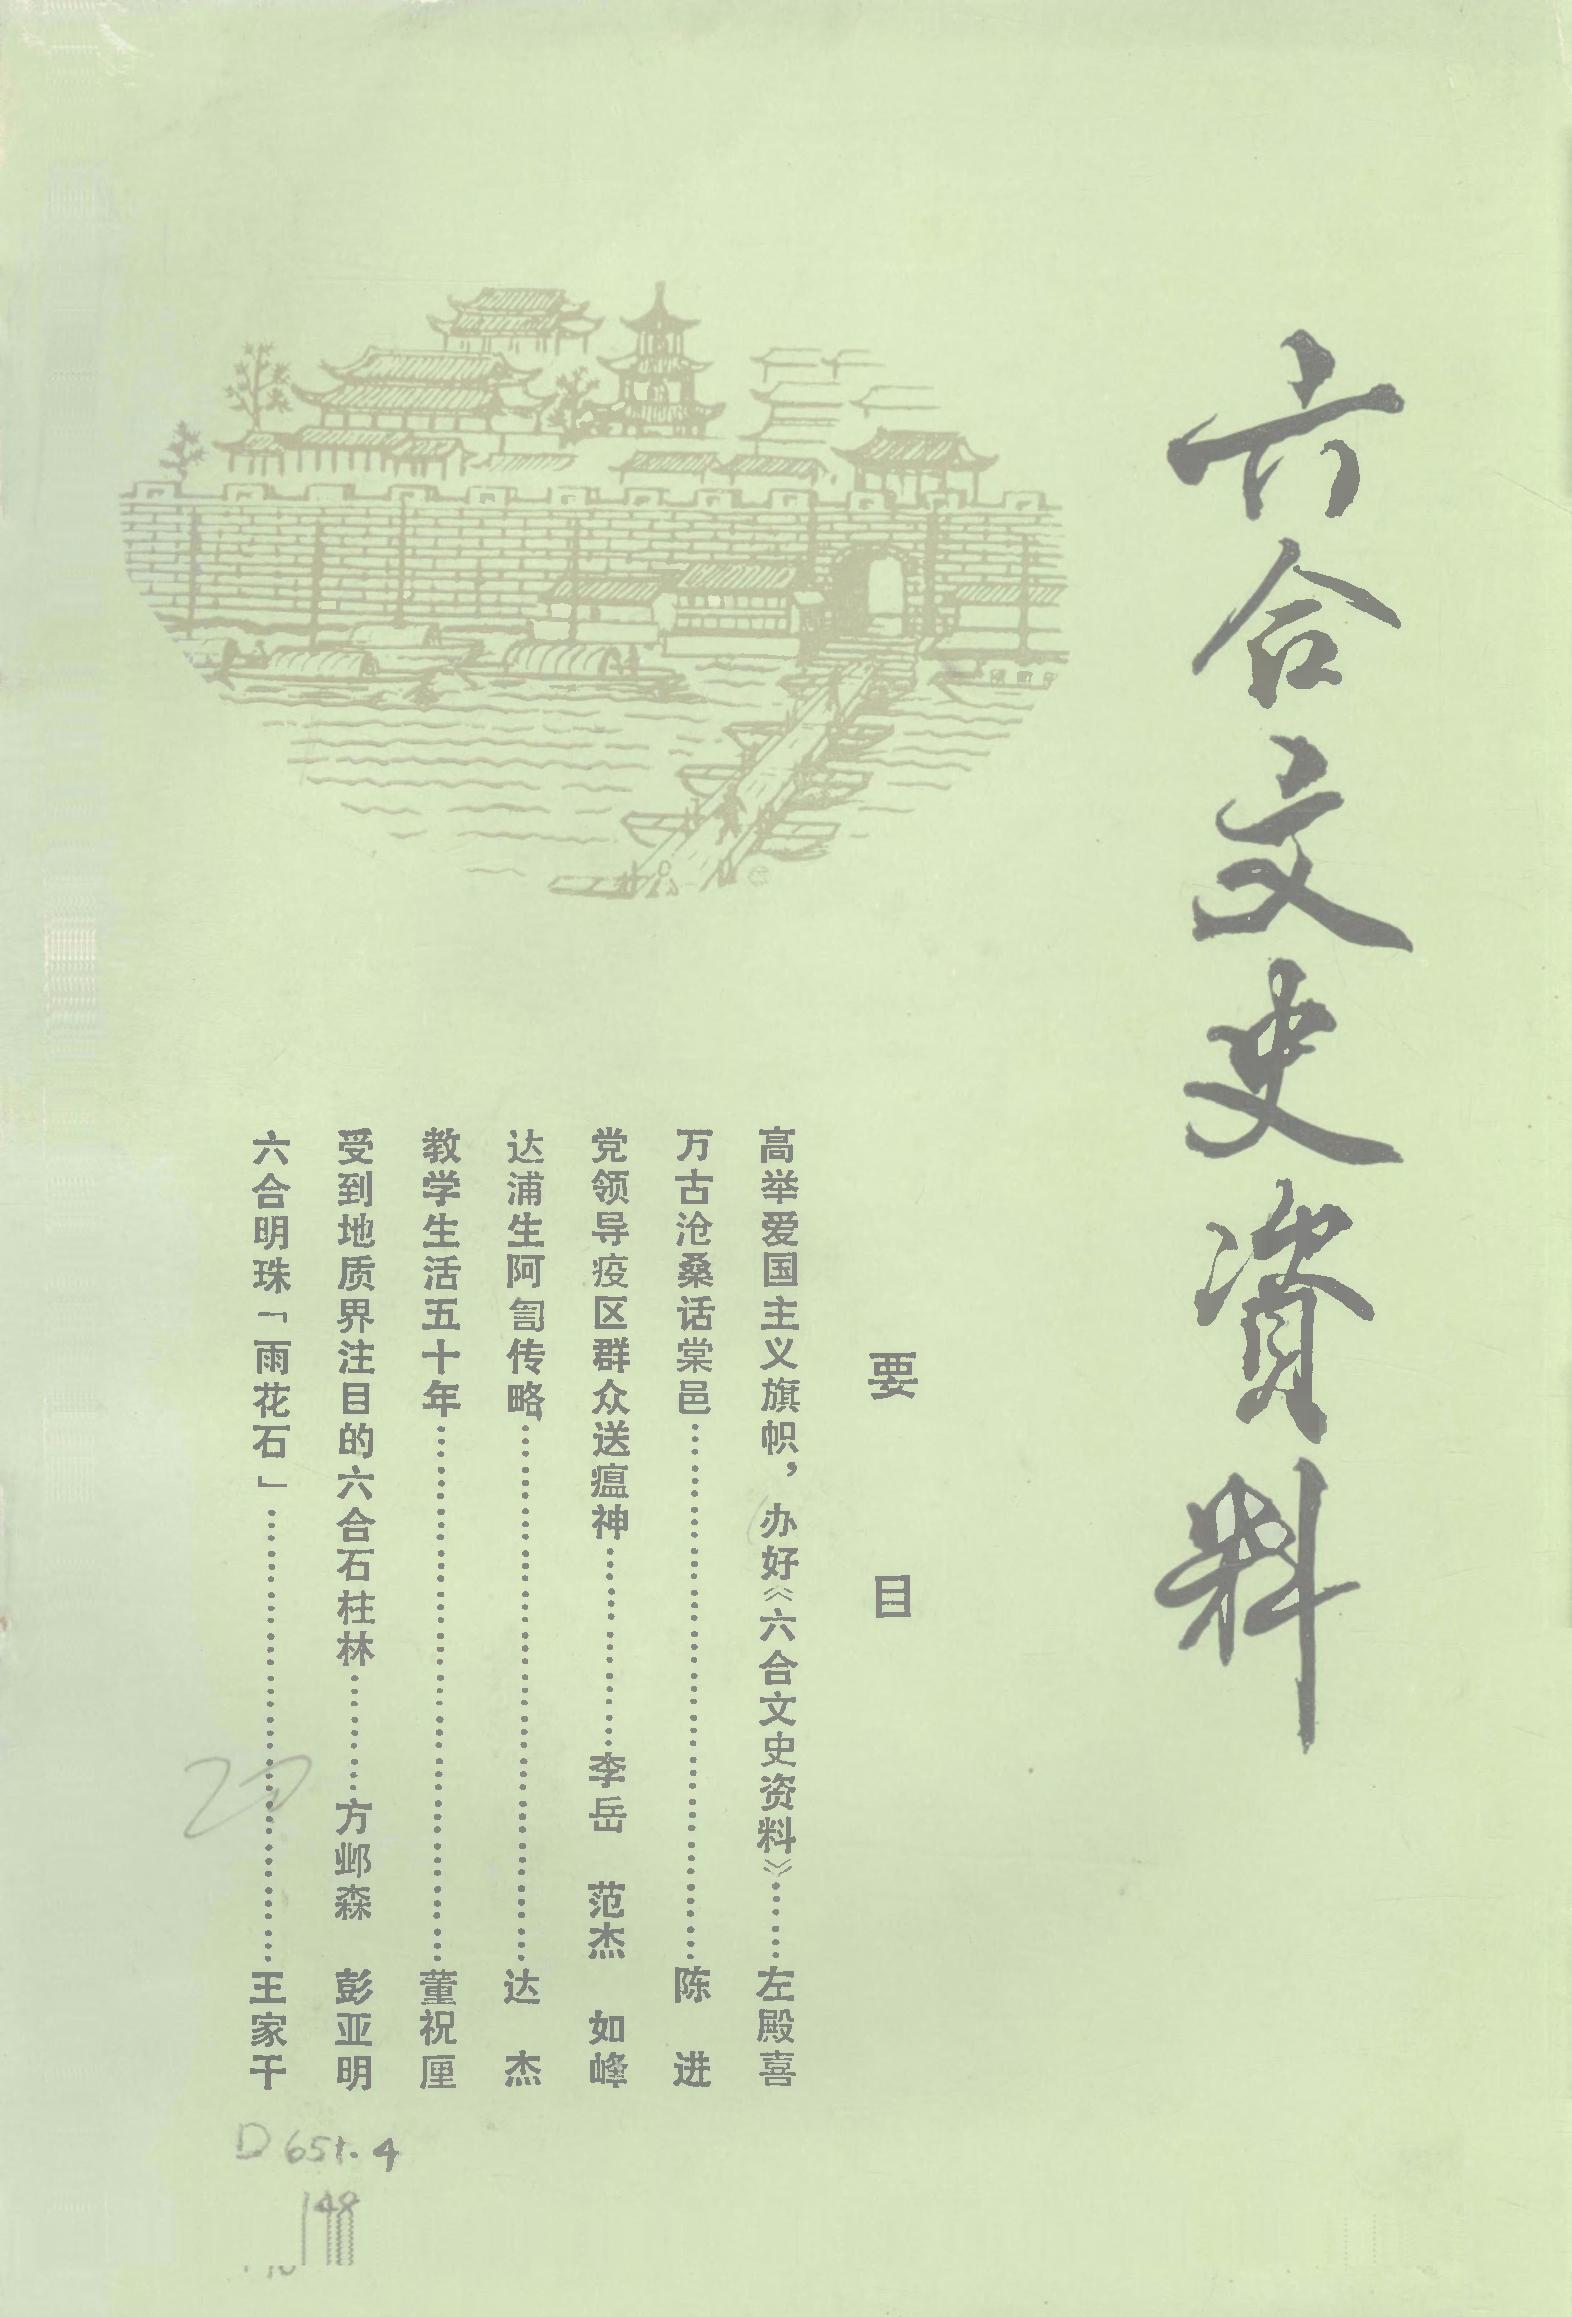 六合文史资料
要目
高举爱国主义旗帜，办好《六合文史资料》……左殿喜
万古沧桑话棠邑……陈 进
党领导疫区群众送瘟神……李岳 范杰 如峰
达浦生阿訇传略……达 杰
教学生活五十年……董祝厘
受到地质界注目的六合石柱林……方邺森 彭亚明
六合明珠「雨花石」……王家干
D 651.4
148